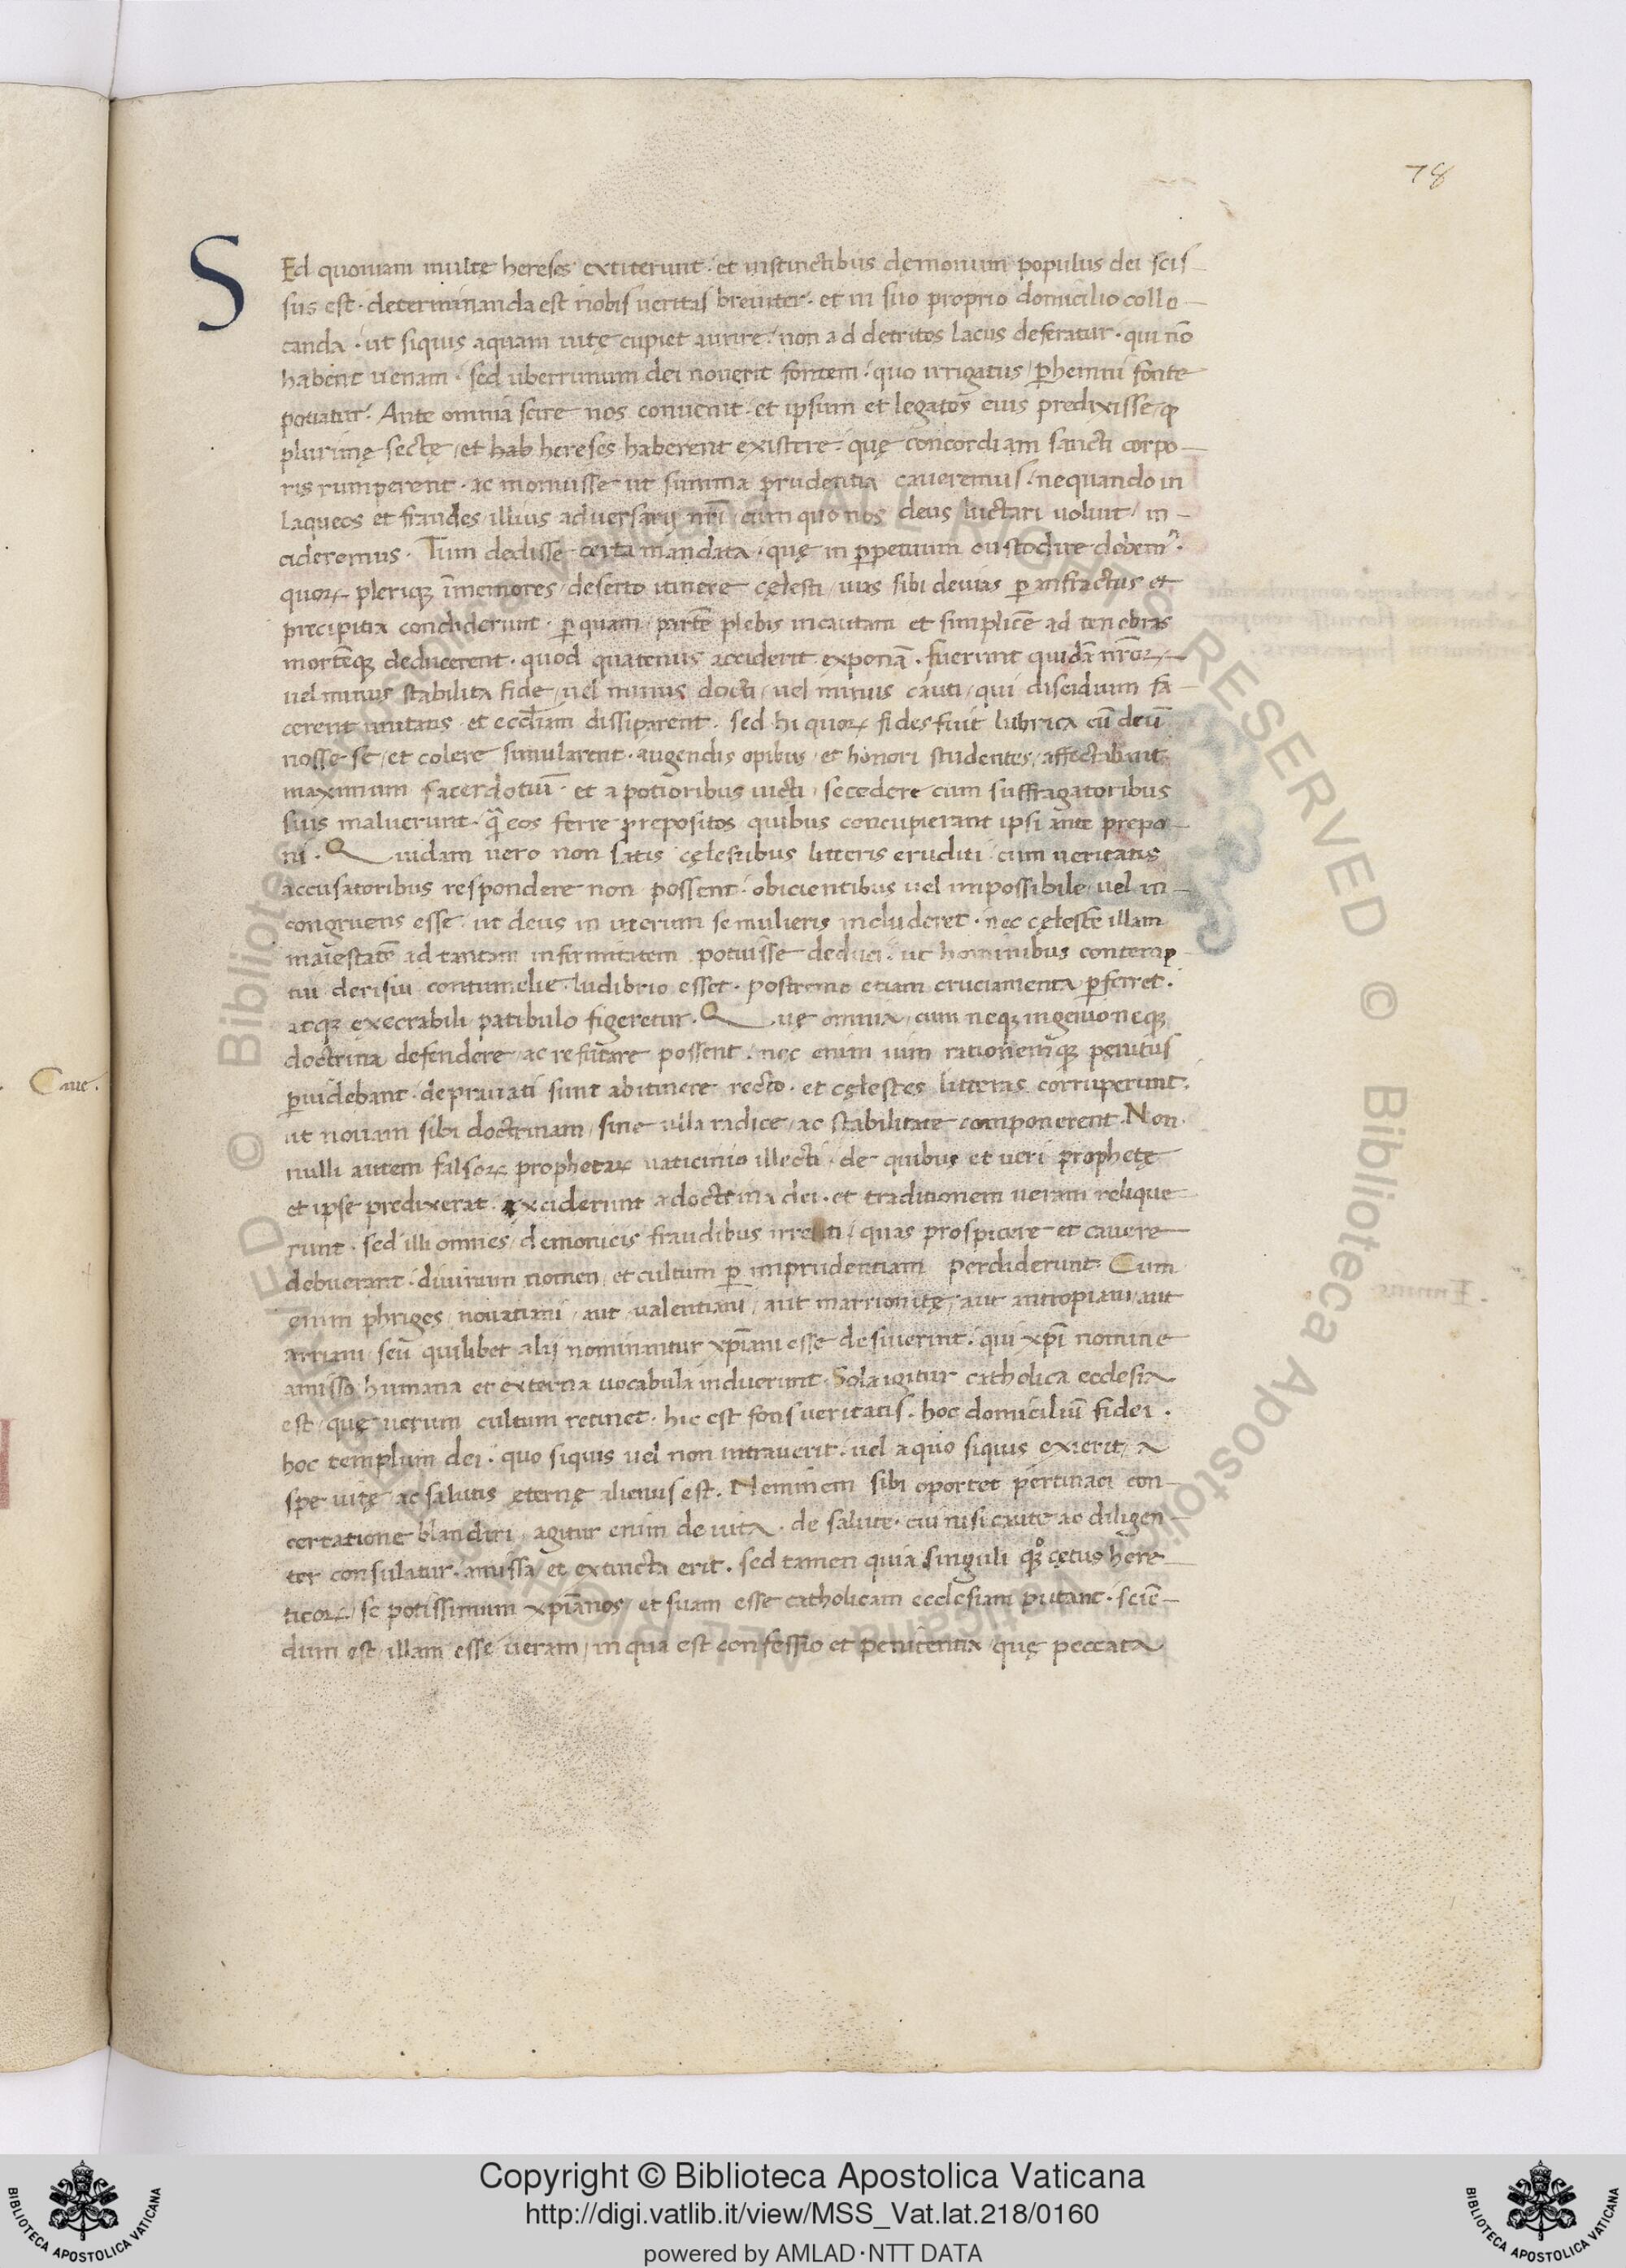 78
SEd quoniam multe hereses extiterunt · et instinctibus dęmonum populus dei scis-
sus est · determinanda est nobis ueritas breuiter · et in suo proprio domicilio collo-
canda · ut siquis aquam uitę cupiet aurire / non ad detritos lacus deferatur · qui nō
habent uenam · sed uberrimum dei nouerit fontem · quo irrigatus / ꝑhenni fonte
potiatur · Ante omnia scire nos conuenit · et ipsum et legatos eius predixisse / ꝙ
plurimę sectę / et hab hereses haberent existere · quę concordiam sancti corpo-
ris rumperent · ac monuisse ut summa prudentia caueremus / nequando in
laqueos et fraudes / illius aduersarij nr̄i / cum quo nos deus luctari uoluit / in-
cideremus · Tum dedisse certa mandata / quę in ꝑpetuum custodire debemꝰ ·
quoꝝ pleriqꝫ īmemores / deserto itinere cęlesti / uias sibi deuias ꝑ anfractus et
precipitia condiderunt · ꝑ quam / partē plebis incautam et simplicē ad tenebras
mortēqꝫ deducerent · quod quatenus acciderit exponā · fuerunt quidā nr̄oꝝ
uel minus stabilita fide / uel minus docti / uel minus cauti / qui discidium fa-
cerent unitatis · et eccl̄iam dissiparent · sed hi quoꝝ fides fuit lubrica cū deū
nosse se / et colere simularent · augendis opibus / et honori studentes / affectabant
maximum sacerdotiū · et a potioribus uicti / secedere cum suffragatoribus
suis maluerunt · q̄ eos ferre prepositos quibus concupierant ipsi ante prepo-
ni · Quidam uero non satis cęlestibus litteris eruditi / cum ueritatis
accusatoribus respondere non possent · obicientibus uel impossibile / uel in-
congruens esse · ut deus in uterum se mulieris includeret · nec cęlestē illam
maiestatē ad tantam infirmitatem potuisse deduci · ut hominibus contemp-
tui derisui contumelie ludibrio esset · postremo etiam cruciamenta ꝑferret ·
atqꝫ execrabili patibulo figeretur · Quę omnia / cum neqꝫ ingenio neqꝫ
doctrina defendere / ac refutare possent · nec enim uim rationemqꝫ penitus
ꝑuidebant · deprauati sunt ab itinere recto · et cęlestes litteras corruperunt ·
ut nouam sibi doctrinam / sine ulla radice / ac stabilitate componerent · Non
nulli autem falsoꝝ prophetaꝝ uaticinio illecti · de quibus et ueri prophetę
et ipse predixerat · exciderunt a doctrina dei · et traditionem ueram relique
runt · sed illi omnes / demonicis fraudibus irretiti / quas prospicere et cauere
debuerant · diuinum nomen / et cultum ꝑ imprudentiam perdiderunt · Cum
enim phriges / nouatiani / aut ualentiani / aut marrionitę / aut antropiani / aut
arriani / seu quilibet alij nominantur xp̄iani esse desiuerint · qui xp̄i nomine
amisso / humana et externa uocabula induerunt · Sola igitur catholica ecclesia
est / quę uerum cultum retinet · hic est fons ueritatis · hoc domicilium fidei ·
hoc templum dei · quo siquis uel non intrauerit · uel a quo siquis exierit / a
spe uitę ac salutis ęternę alienus est · Neminem sibi oportet pertinaci con-
certatione blandiri / agitur enim de uita · de salute · cui nisi caute ac diligen-
ter consulatur · amissa / et extincta erit · sed tamen quia singuli qꝫ cętus here
ticoꝝ / se potissimum xp̄ianos / et suam esse catholicam ecclesiam putant · sciē-
dum est / illam esse ueram / in qua est confessio et penitentia / quę peccata
· Caue ·
Copyright © Biblioteca Apostolica Vaticana
http://digi.vatlib.it/view/MSS_Vat.lat.218/0160
powered by AMLAD·NTT DATA
BIBLIOTECA APOSTOLICA VATICANA
BIBLIOTECA APOSTOLICA VATICANA